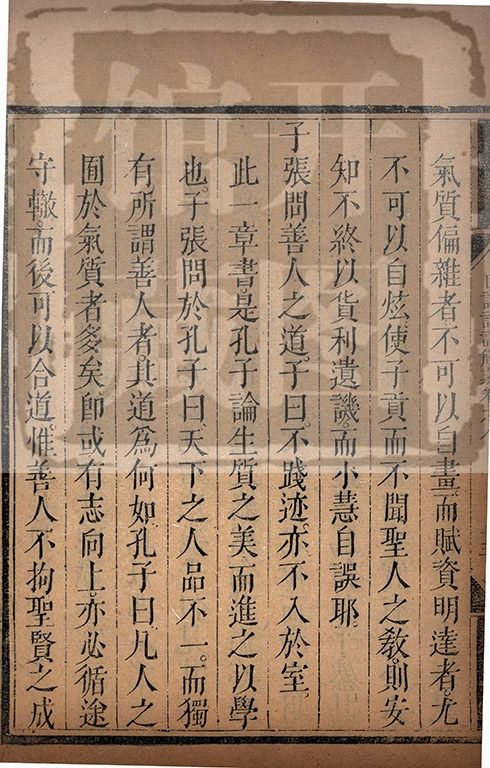 氣質偏雜者不可以自畫而賦資明達者。尤
不可以自炫。使子貢而不聞聖人之敎。則安
知不終以貨利遺譏。而小慧自誤耶
子張問善人之道。子曰。不踐迹。亦不入於室。
此一章書。是孔子論生質之美而進之以學
也。子張問於孔子曰。天下之人品不一。而獨
有所謂善人者。其道爲何如。孔子曰。凡人之
囿於氣質者多矣。卽或有志向上。亦必循途
守轍。而後可以合道。惟善人不拘聖賢之成